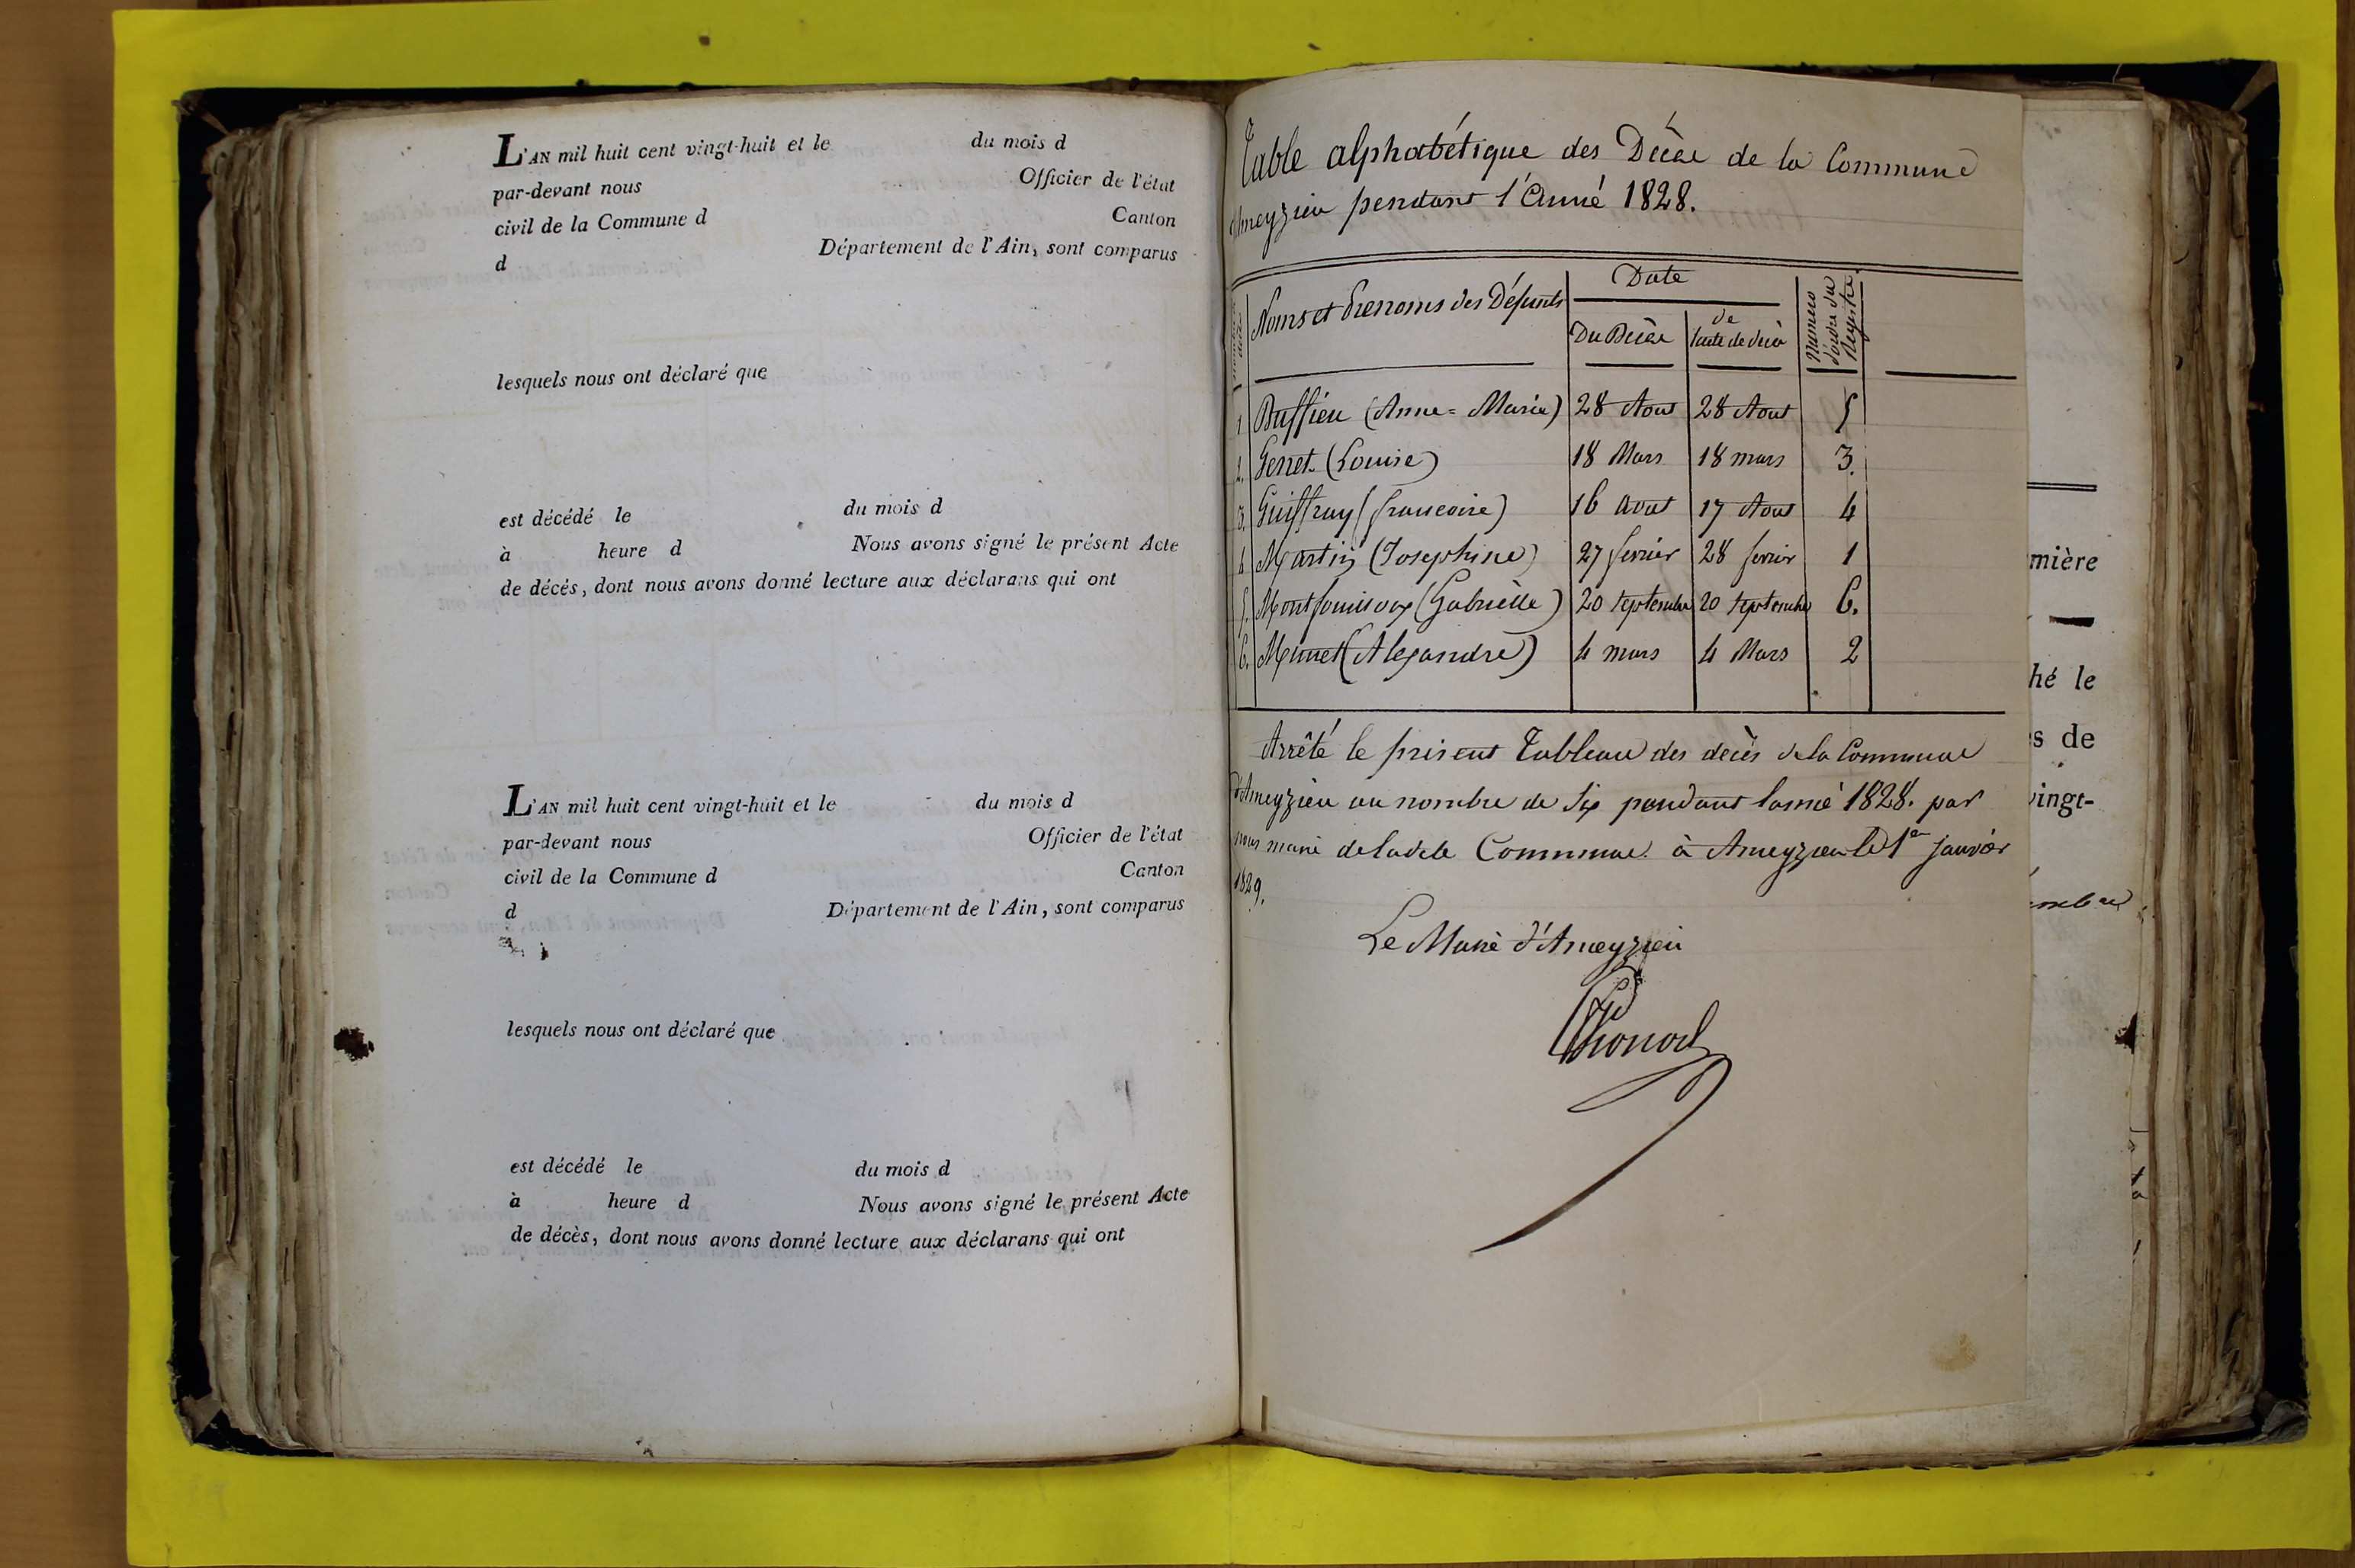 L'AN mil huit cent vingt-huit et le du mois d
par-devant nous Officier de l'état
civil de la Commune d Canton
d Département de l'Ain, sont comparus
lesquels nous ont déclaré que
est décédé le du mois d
à heure d Nous avons signé le présent Acte
de décés, dont nous avons donné lecture aux déclarans qui ont
L'AN mil huit cent vingt-huit et le du mois d
par-devant nous Officier de l'état
civil de la Commune d Canton
d Département de l'Ain, sont comparus
lesquels nous ont déclaré que
est décédé le du mois d
à heure d Nous avons signé le présent Acte
de décès, dont nous avons donné lecture aux déclarans qui ont
Table alphabétique des Décès de la Commune
d'Ameyzieu pendant l'Année 1828.
Noms et Prenoms des Défunts
Date
Du Décès
de l'acte de décès
Numero d'ordre du Registre
1 Buffieu (Anne=Marie) 28 Aout 28 Aout 5
2. Genet (Louise) 18 Mars 18 mars 3.
3. Guiffray (francoise) 16 aout 17 Aout 4
4 Martin (Josephine) 27 fevrier 28 fevrier 1
5. Montfouilloux (Gabrielle) 20 septembre 20 septembre 6.
6. Munet (Alexandre) 4 mars 4 Mars 2
Arrêté le present Tableau des decès de la Commune
d'Ameyzieu au nombre de Six pendant l'année 1828. par
nous maire de ladite Commune. à Ameyzieu le 1er janvier
1829.
Le Maire d'Ameyzieu
mière
hé le
s de
vingt-